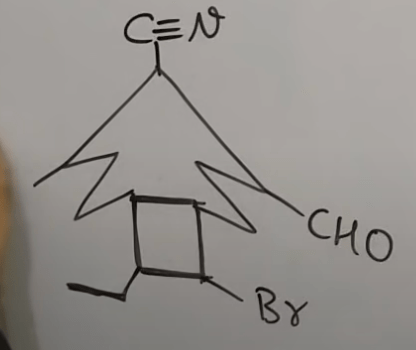 C≡N
CHO
Br